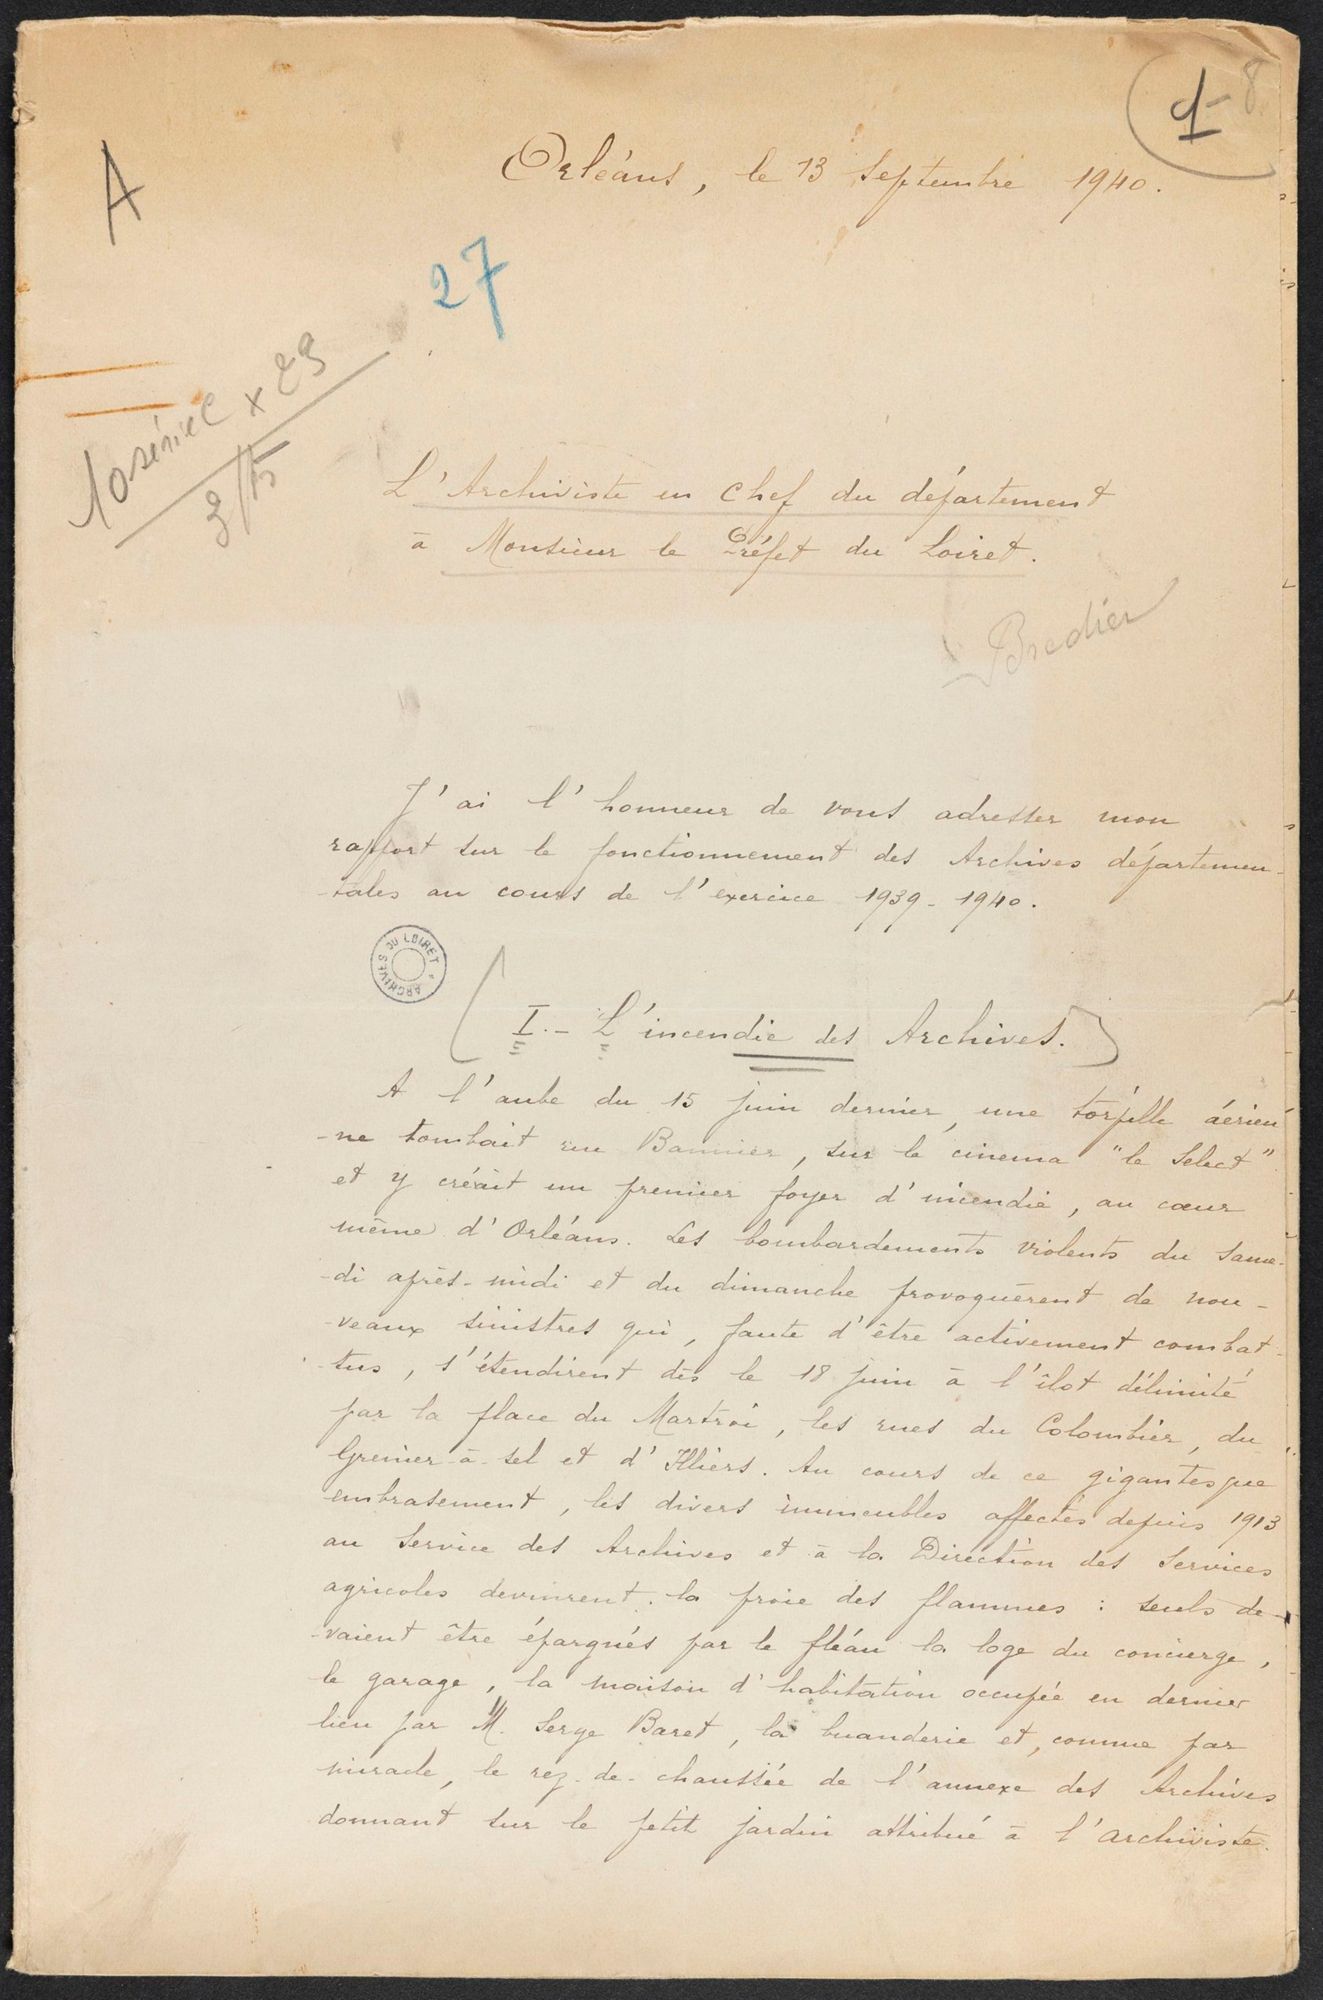 1 - 8
Orléans, le 13 Septembre 1940.
A
27
x 29
3/15
L'Archiviste en Chef du département
à Monsieur le Préfet du Loiret.
Bredier
J'ai l'honneur de vous adresser mon
rapport sur le fonctionnement des Archives départemen-
-tales au cours de l'exercice 1939-1940.
ARCHIVES DU LOIRET *
I.- L'incendie des Archives.
A l'aube du 15 juin dernier, une torpille aérien
-ne tombait rue Bannier, sur le cinema "le Select"
et y créait un premier foyer d'incendie, au cœur
même d'Orléans. Les bombardements violents du same-
-di après-midi et du dimanche provoquèrent de nou-
-veaux sinistres qui, faute d'être activement combat-
-tus, s'étendirent dès le 18 juin à l'îlot délimité
par la place du Martroi, les rues du Colombier, du
Grenier-à-sel et d'Illiers. Au cours de ce gigantesque
embrasement, les divers immeubles affectés depuis 1913
au Service des Archives et à la Direction des Services
agricoles devinrent la proie des flammes : seuls de-
-vaient être épargnés par le fléau la loge du concierge,
le garage, la maison d'habitation occupée en dernier
lieu par M. Serge Baret, la buanderie et, comme par
miracle, le rez-de-chaussée de l'annexe des Archives
donnant sur le petit jardin attribué à l'archiviste.